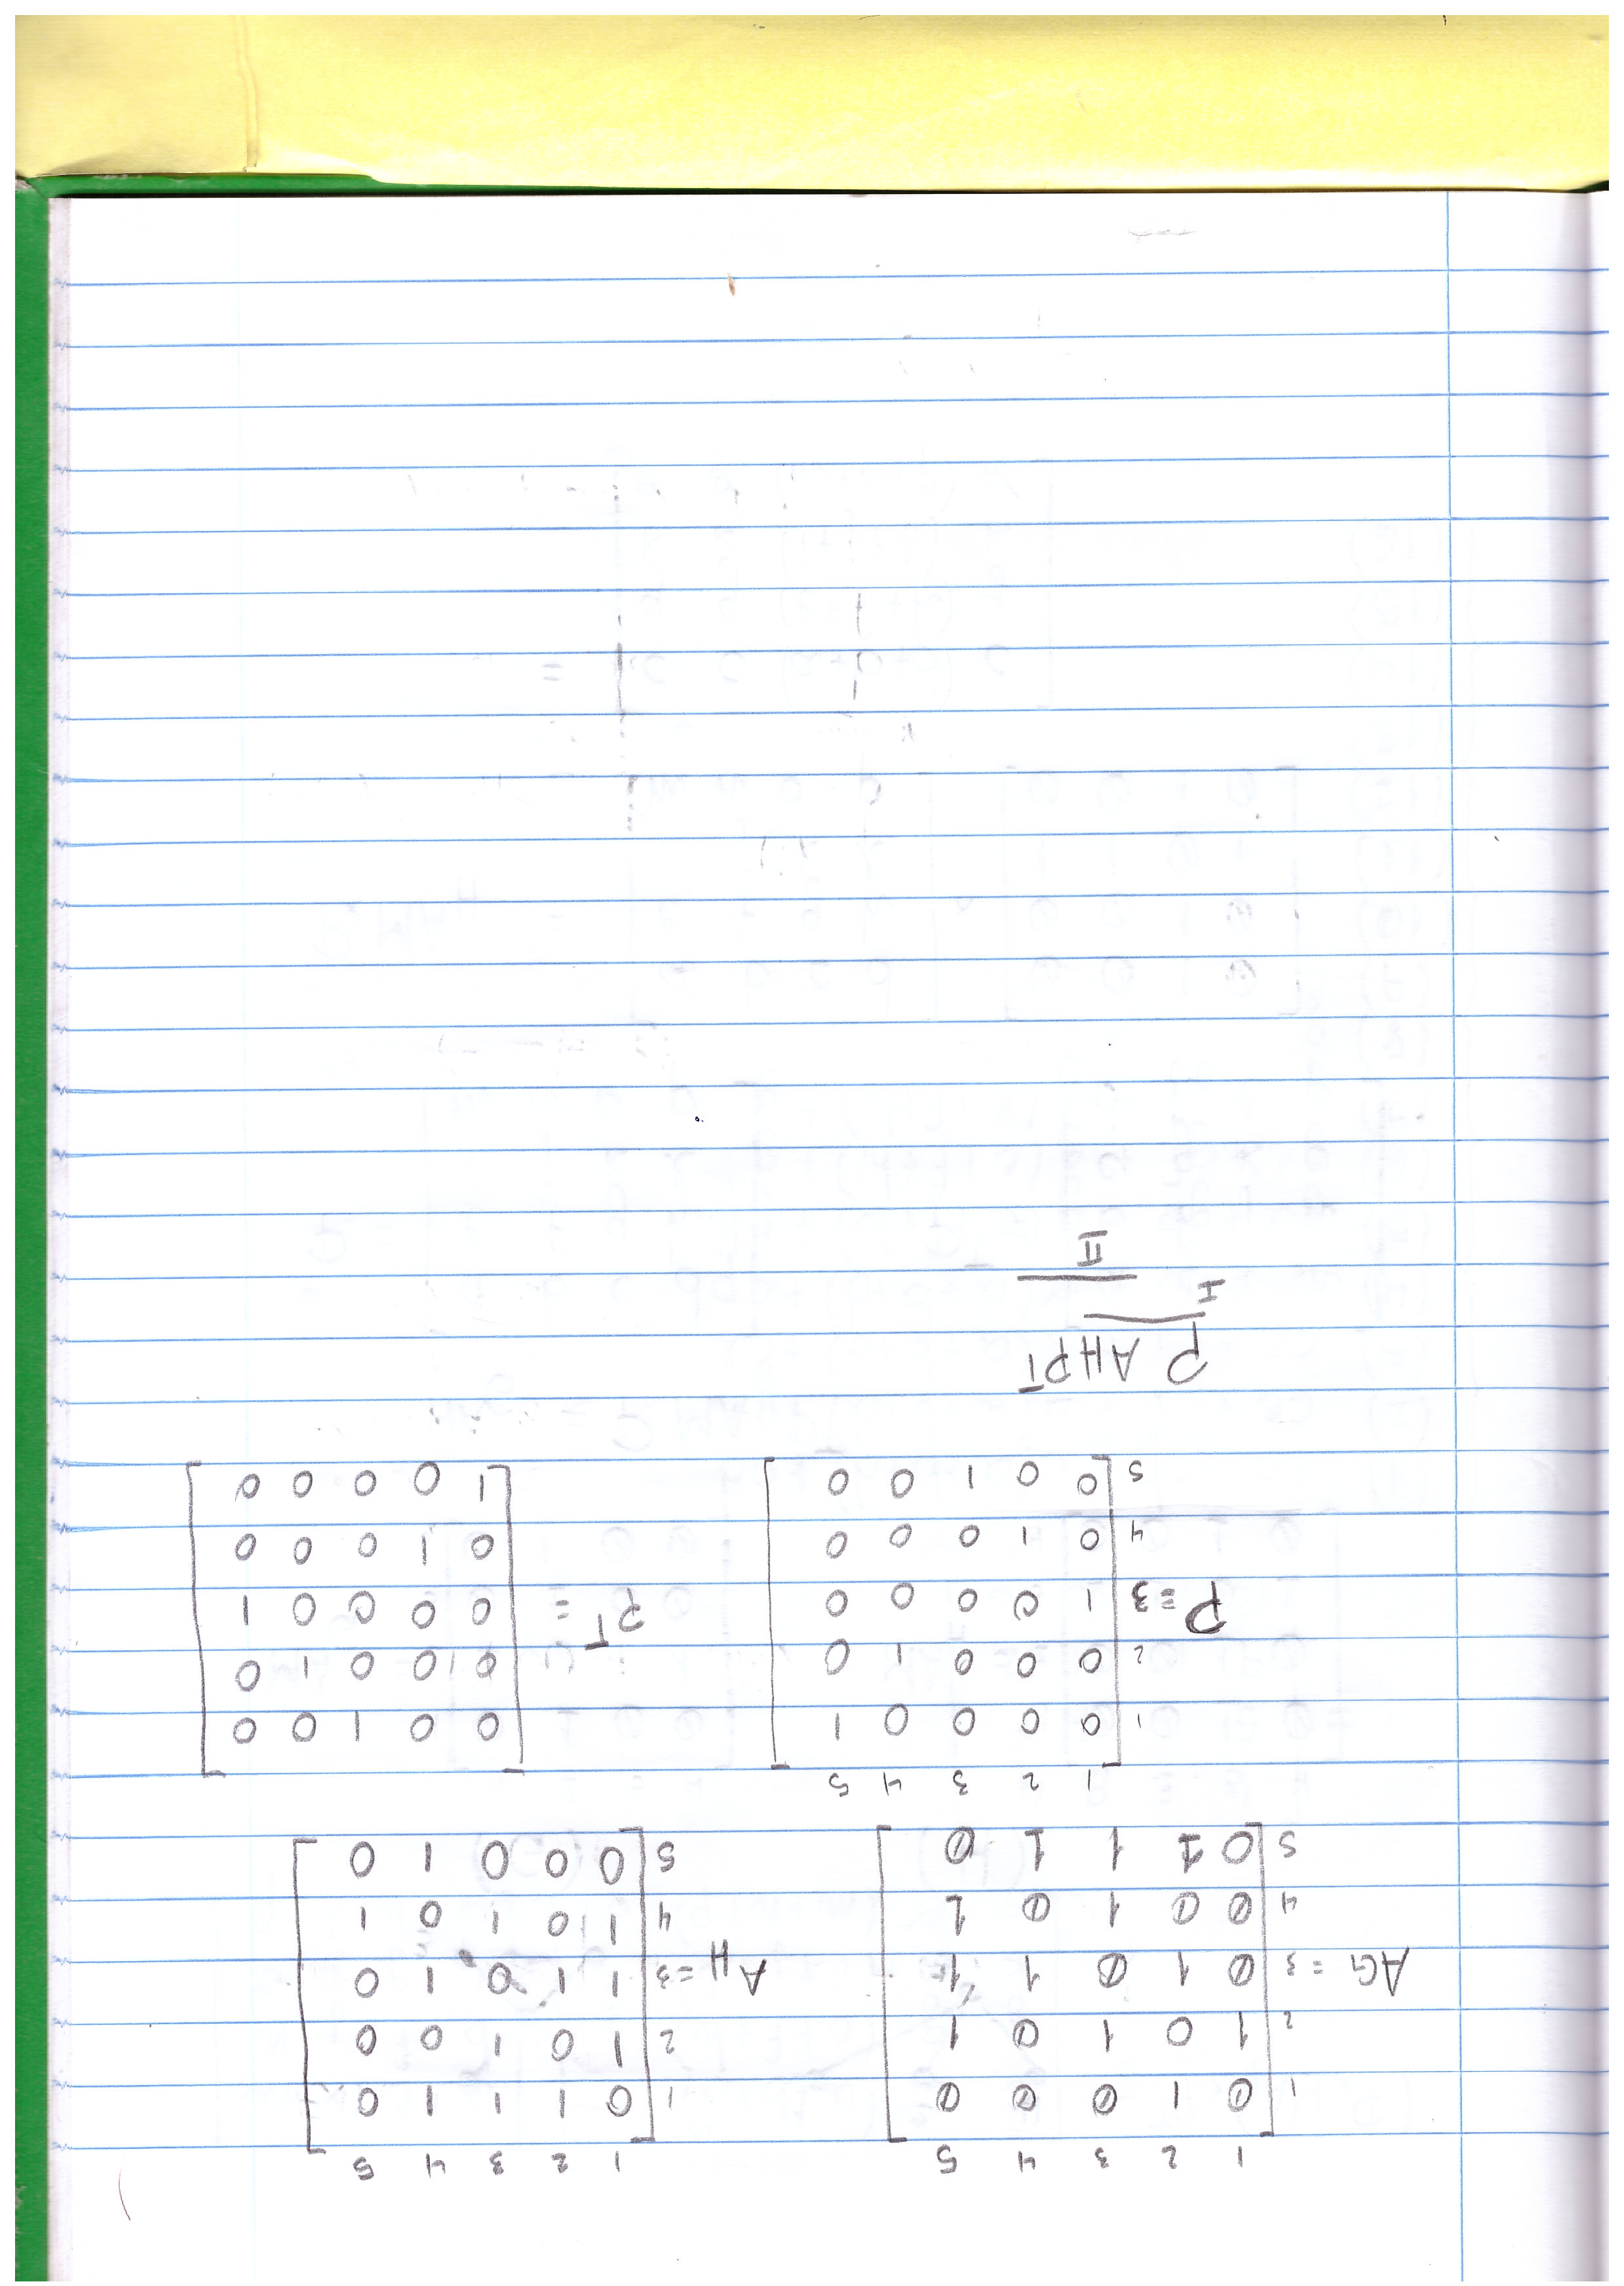 1 2 3 4 5
1 0 1 0 0 0
2 1 0 1 0 1
AG = 3 0 1 0 1 1
4 0 0 1 0 1
5 0 1 1 1 0
1 2 3 4 5
1 0 1 1 1 0
2 1 0 1 0 0
AH = 3 1 1 0 1 0
4 1 0 1 0 1
5 0 0 0 1 0
1 2 3 4 5
1 0 0 0 0 1
2 0 0 0 1 0
P = 3 1 0 0 0 0
4 0 1 0 0 0
5 0 0 1 0 0
0 0 1 0 0
0 0 0 1 0
PT = 0 0 0 0 1
0 1 0 0 0
1 0 0 0 0
P AHPT
I
II